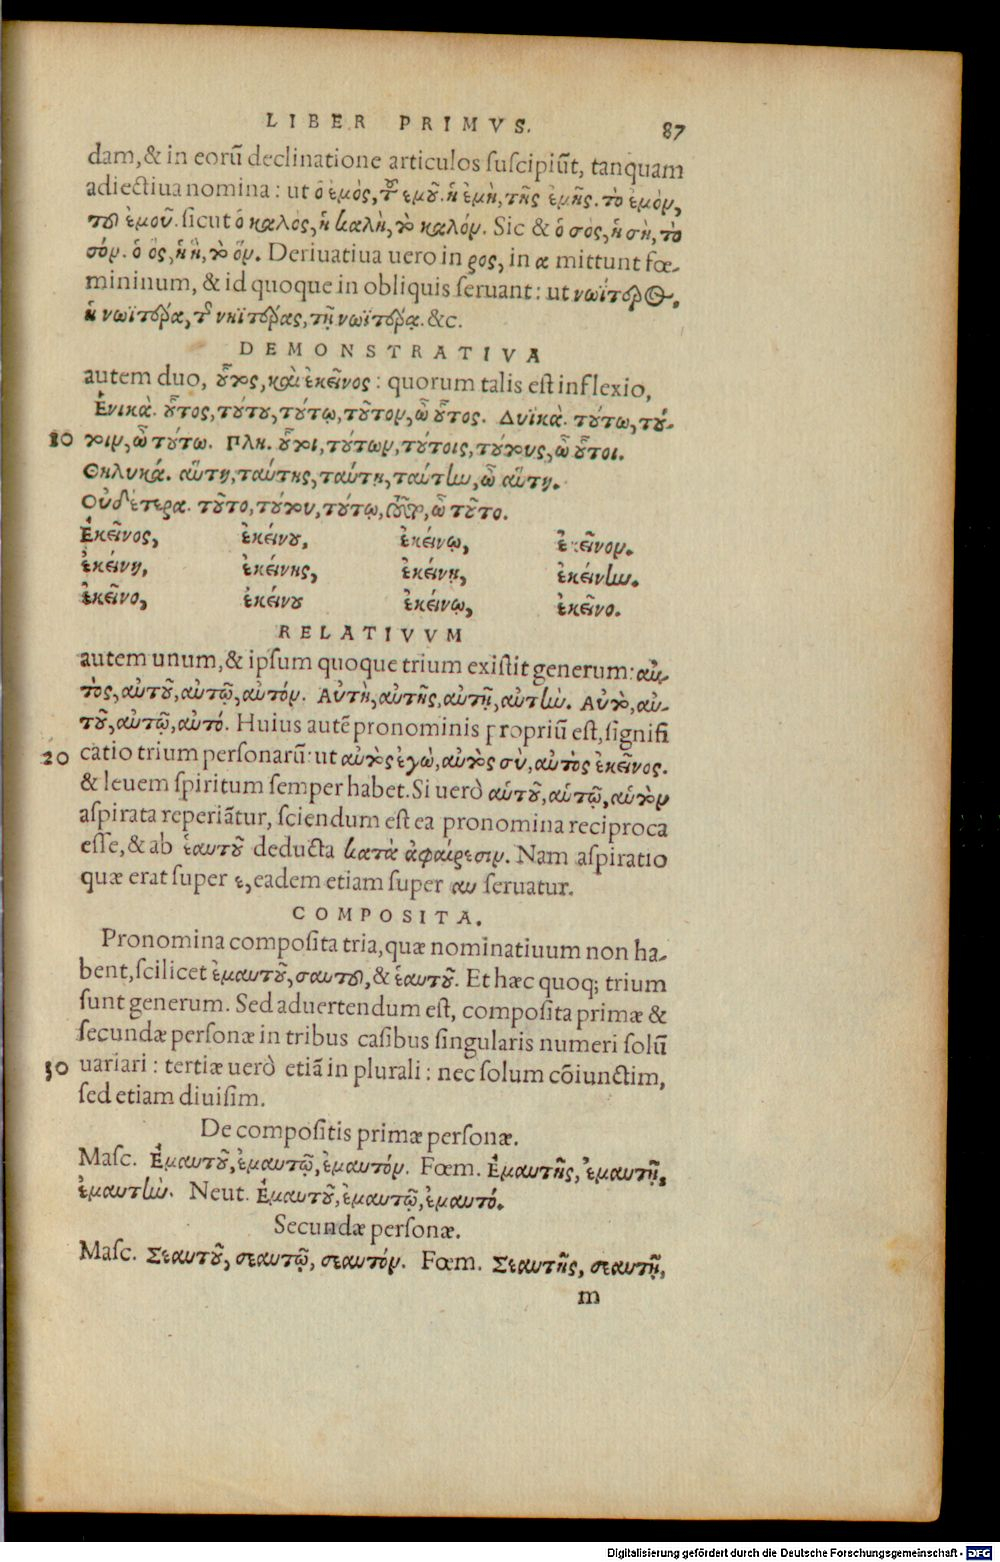 LIBER PRIMVS. 87
dam, & in eorū declinatione articulos suscipiūt, tanquam
adiectiua nomina: ut ὁ ἐμὸς, τοῦ ἐμοῦ. ἡ ἐμὴ, τῆς ἐμῆς. τὸ ἐμὸν,
τοῦ ἐμοῦ. sicut ὁ καλὸς, ἡ καλὴ, τὸ καλόν. Sic & ὁ σὸς, ἡ σὴ, τὸ
σόν. ὁ ὃς, ἡ ἣ, τὸ ὅν. Deriuatiua uero in ρος, in α mittunt fœ-
mininum, & id quoque in obliquis seruant: ut νωΐτερος,
ἡ νωϊτέρα, τῆς νηϊτέρας, τῇ νωϊτέρᾳ. &c.
DEMONSTRATIVA
autem duo, οὗτος, καὶ ἐκεῖνος: quorum talis est inflexio,
Ἑνικὰ. οὗτος, τούτου, τούτῳ, τοῦτον, ὦ οὗτος. Δυϊκὰ. τούτω, τού-
10 τοιν, ὦ τούτω. Πλη. οὗτοι, τούτων, τούτοις, τούτους, ὦ οὗτοι.
Θηλυκά. αὕτη, ταύτης, ταύτῃ, ταύτην, ὦ αὕτη.
Οὐδέτερα. τοῦτο, τούτου, τούτῳ, τοῦτο, ὦ τοῦτο.
Ἐκεῖνος, ἐκείνου, ἐκείνῳ, ἐκεῖνον.
ἐκείνη, ἐκείνης, ἐκείνῃ, ἐκείνην.
ἐκεῖνο, ἐκείνου ἐκείνῳ, ἐκεῖνο.
RELATIVVM
autem unum, & ipsum quoque trium existit generum: αὐ-
τὸς, αὐτοῦ, αὐτῷ, αὐτόν. Αὐτὴ, αὐτῆς, αὐτῇ, αὐτὴν. Αὐτὸ, αὐ-
τοῦ, αὐτῷ, αὐτό. Huius autē pronominis propriū est, signifi
20 catio trium personarū: ut αὐτὸς ἐγὼ, αὐτὸς σὺ, αὐτὸς ἐκεῖνος.
& leuem spiritum semper habet. Si uerò αὑτοῦ, αὑτῷ, αὑτὸν
aspirata reperiātur, sciendum est ea pronomina reciproca
esse, & ab ἑαυτοῦ deducta κατὰ ἀφαίρεσιν. Nam aspiratio
quæ erat super ε, eadem etiam super αυ seruatur.
COMPOSITA.
Pronomina composita tria, quæ nominatiuum non ha-
bent, scilicet ἐμαυτοῦ, σαυτοῦ, & ἑαυτοῦ. Et hæc quoq; trium
sunt generum. Sed aduertendum est, composita primæ &
secundæ personæ in tribus casibus singularis numeri solū
30 uariari: tertiæ uerò etiā in plurali: nec solum cōiunctim,
sed etiam diuisim.
De compositis primæ personæ.
Masc. Ἐμαυτοῦ, ἐμαυτῷ, ἐμαυτόν. Fœm. Ἐμαυτῆς, ἐμαυτῇ,
ἐμαυτὴν. Neut. Ἐμαυτοῦ, ἐμαυτῷ, ἐμαυτό.
Secundæ personæ.
Masc. Σεαυτοῦ, σεαυτῷ, σεαυτόν. Fœm. Σεαυτῆς, σεαυτῇ,
m
Digitalisierung gefördert durch die Deutsche Forschungsgemeinschaft - DFG